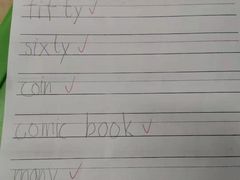 fifty
sixty
coin
comic book
many